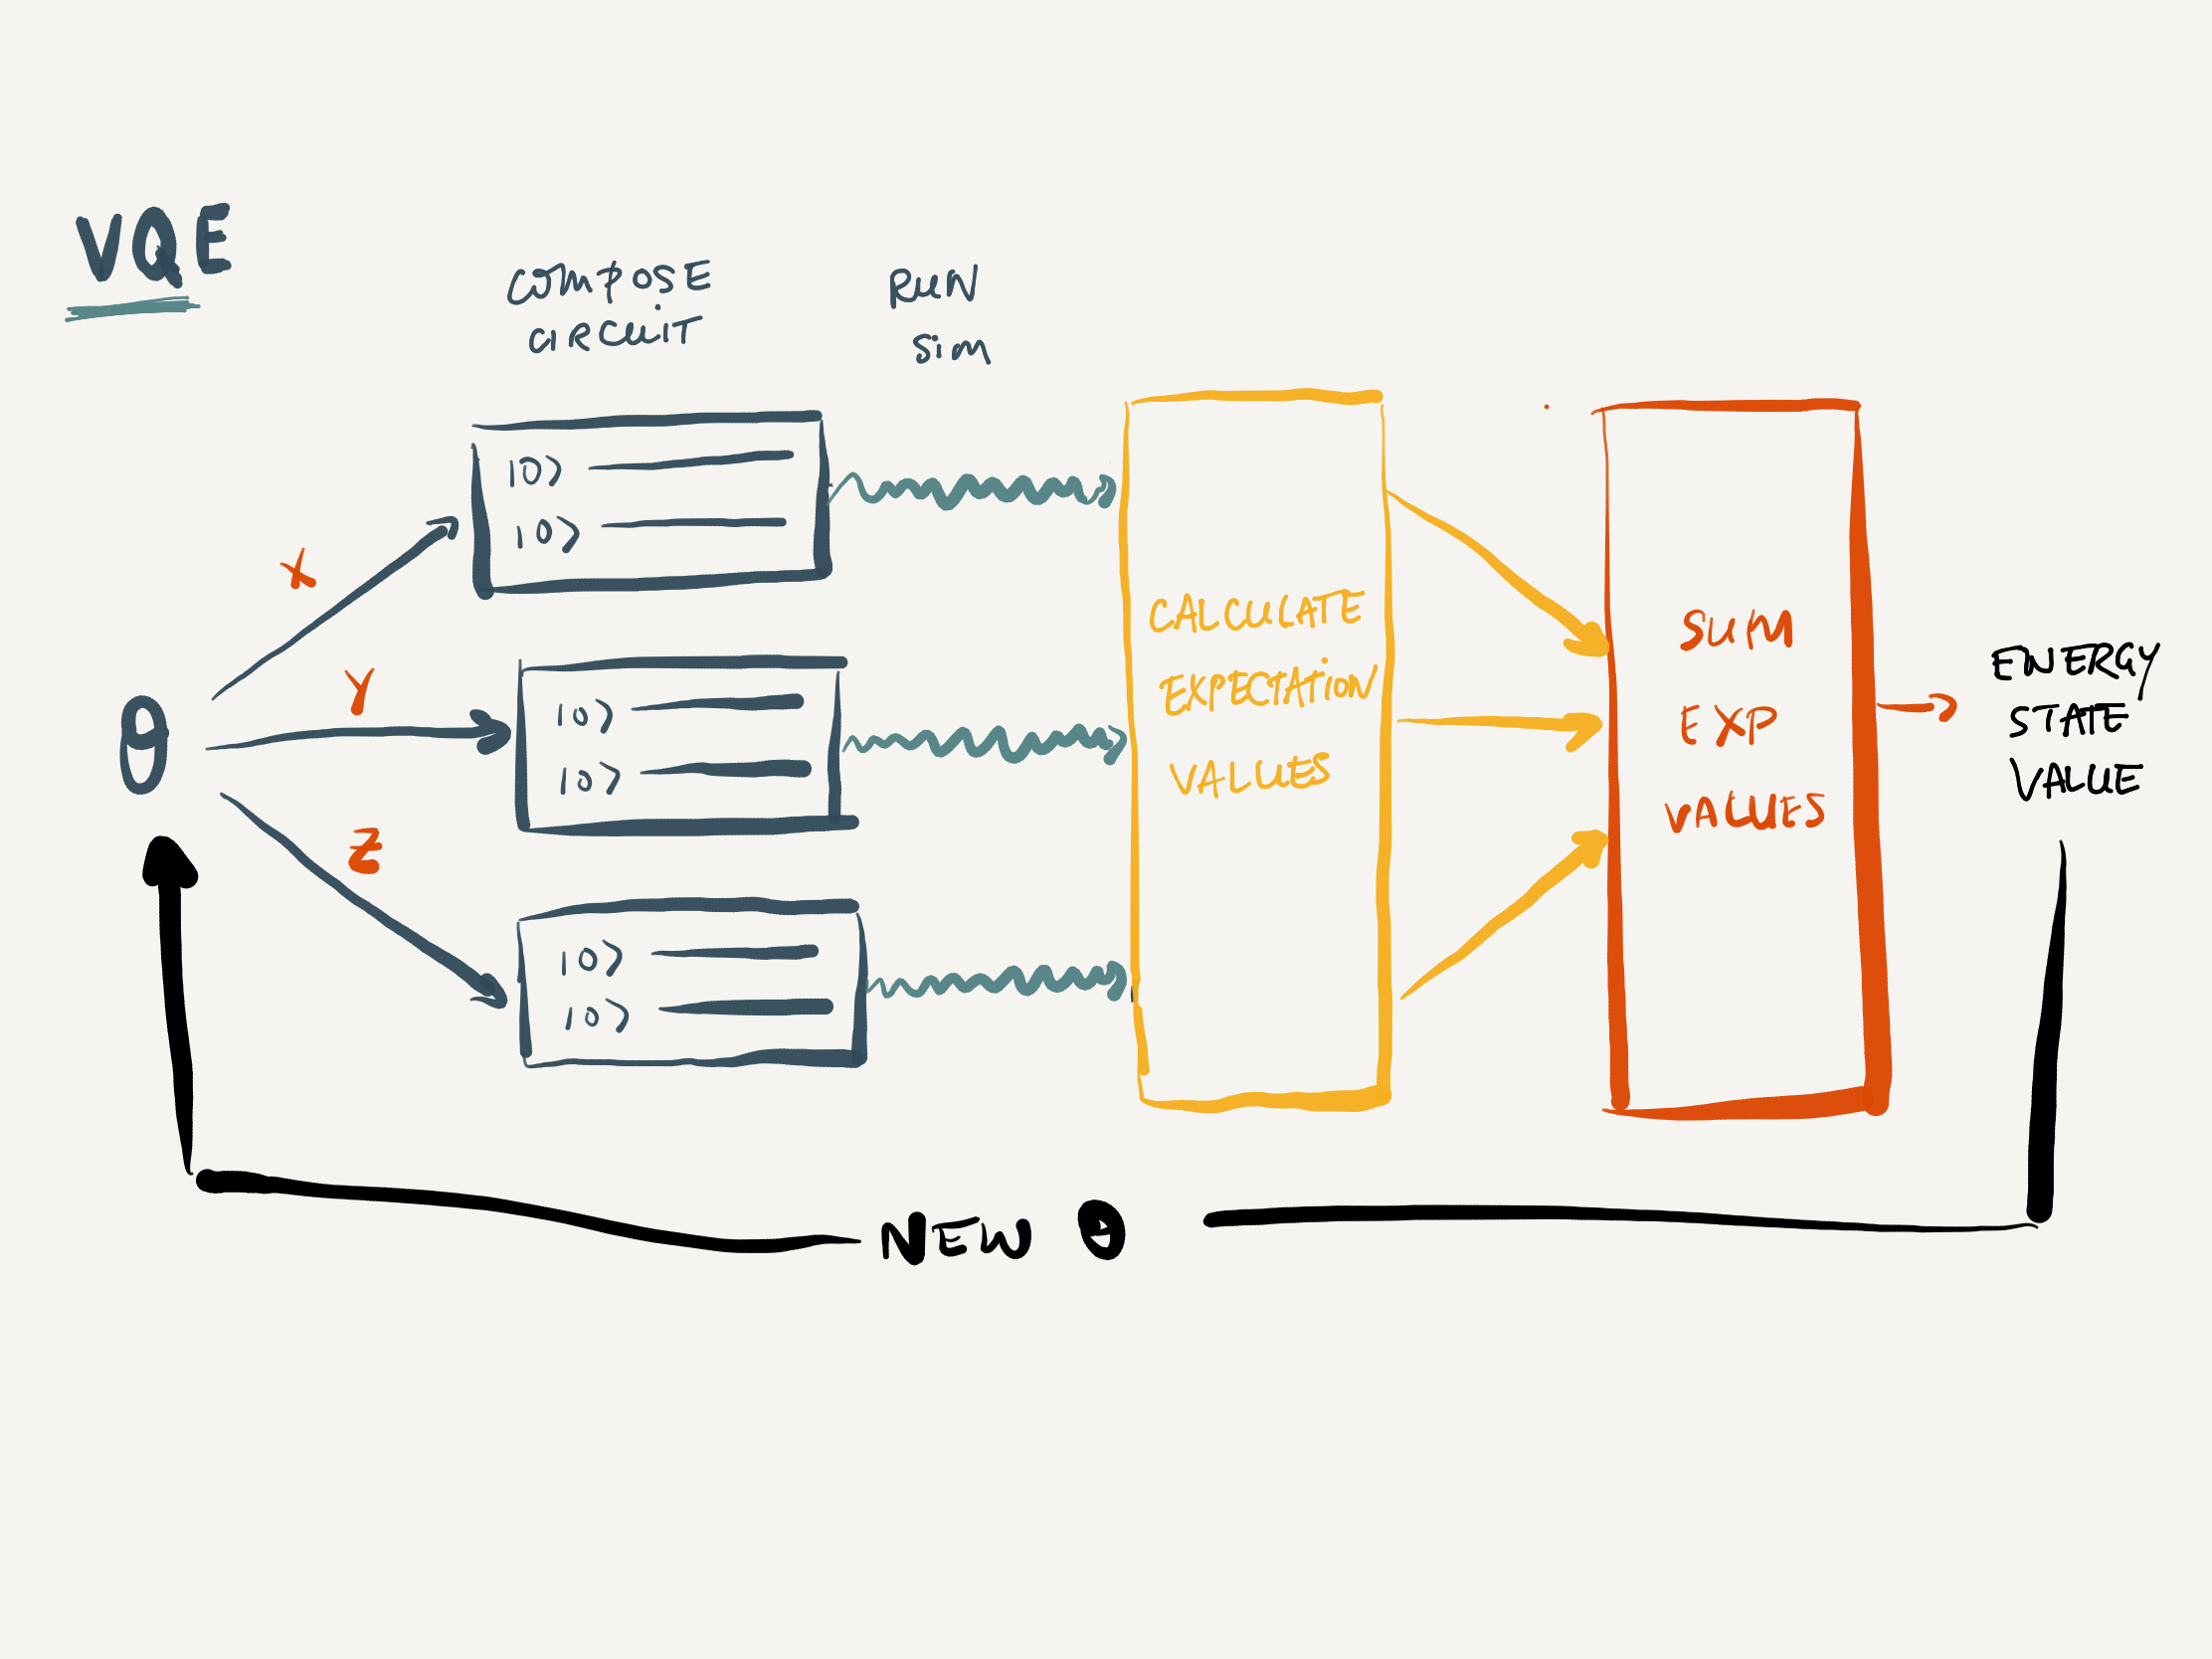 VQE
COMPOSE
CIRCUIT
RUN
SIM
X
Y
Z
θ
|0⟩
|0⟩
|0⟩
|0⟩
|0⟩
|0⟩
CALCULATE
EXPECTATION
VALUES
SUM
EXP
VALUES
ENERGY
STATE
VALUE
NEW θ